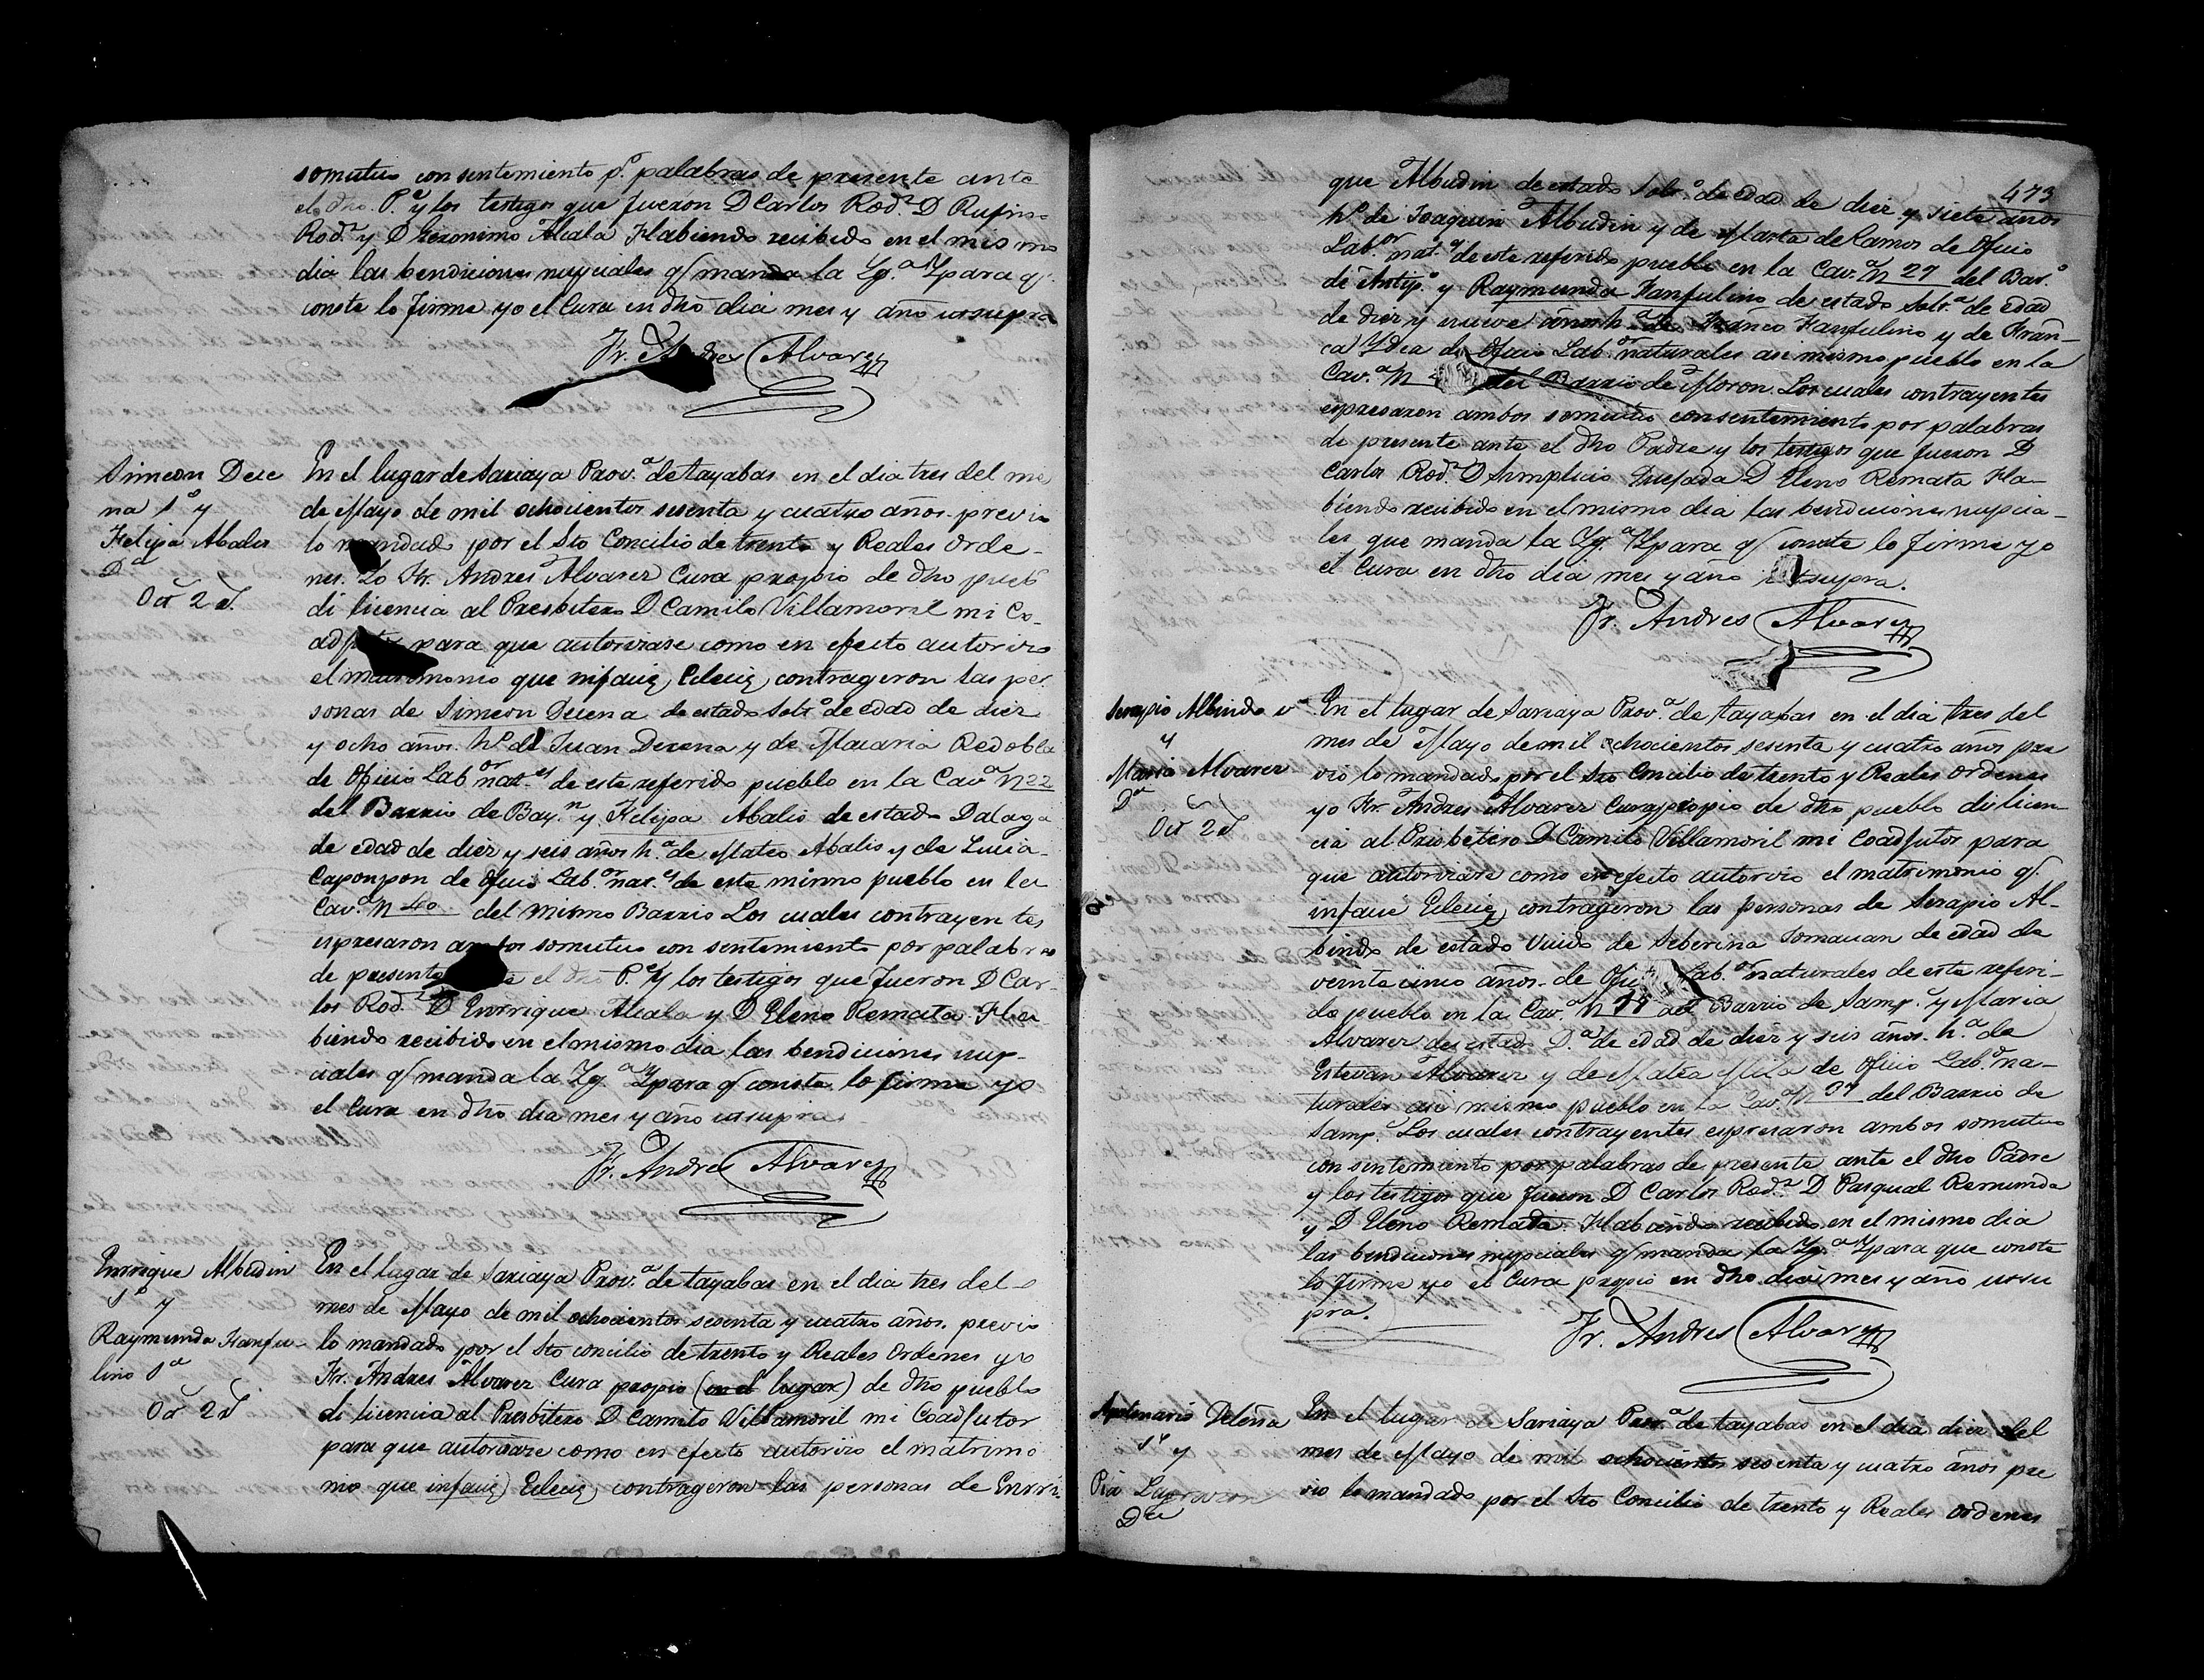 somutuo consentemiento pr. palabras de presente ante
el dho. P.e y los testigos que fueron D Carlos Rod.z D Rufino
Rod.z y D Geronimo Alcala Habiendo recibido en el mismo
dia las bendiciones nupciales q/ manda la Yg.a Ypara q/
conste lo firme yo el Cura en dho dia mes y año ussupra
Fr. Andres Alvarez
Simeon Dece
na S.o y
Felipa Abales
D.a
Oct 2 T.
En el lugar de Sariaya Prov.a de tayabas en el dia tres del me
de Mayo de mil ochocientos sesenta y cuatro años previo
lo mandado por el Sto Concilio de trento y Reales orde-
nes. Yo Fr. Andres Alvarez Cura propio de dho pueb
di licencia al Presbitero D Camilo Villamoril mi Co-
adjutor para que autorizase como en efecto autorizo
el matrimonio que infacie Eclecie contrageron las per
sonas de Simeon Decena de estado Solt.o de edad de diez
y ocho años. h.o de Juan Dezena y de Macaria Redobla
de Oficio Lab.or nat.es de este referido pueblo en la Cav.a N 22
del Barrio de Bay.n y Felipa Abalis de estado Dalaga
de edad de diez y seis años h.a de Mateo Abalis y de Lucia
Caponpon de Oficio Lab.or nat.es de este mismo pueblo en la
Cav.a N 40 del mismo Barrio Los cuales contrayentes
espresaron ambos somutuo con sentemiento por palabras
de presente ante el dho P.e y los testigos que fueron D Car-
los Rod.z D Enrrique Alcala y D Eleno Remata Ha
biendo recibido en el mismo dia las bendiciones nup-
ciales q/ manda la Yg.a Ypara q/ conste lo firme yo
el Cura en dho dia mes y año ussupra
Fr. Andres Alvarez
Enrrique Albudin
S.o y
Raymunda Hanfu-
lino S.a
Oct 2 T
En el lugar de Sariaya Prov.a de tayabas en el dia tres del
mes de Mayo de mil ochocientos sesenta y cuatro años previo
lo mandado por el Sto concilio de trento y Reales Ordenes yo
Fr. Andres Alvarez Cura propio (en el lugar) de dho pueblo
di licencia al Presbitero D Camilo Villamoril mi Coadjutor
para que autorizase como en efecto autorizo el matrimo
nio que infacie Eclecie contrageron las personas de Enrri-
473
que Albudin de estado Solt.o de edad de diez y siete años
h.o de Joaquin Albudin y de Marta de Ramos de Oficio
Lab.or nat.s de este referido pueblo en la Cav.a N 27 del Bar.o
de Antip.o y Raymunda Hanfulino de estado Solt.a de edad
de diez y nueve años h.a de Franco Hanfulino y de Fran-
ca Ydea de Oficio Lab.or naturales asi mismo pueblo en la
Cav.a N del Barrio de Moron. Los cuales contrayentes
espresaron ambos somutuo consentemiento por palabras
de presente ante el dho Padre y los testigos que fueron D
Carlos Rod.z D Simplicio Quesada D Eleno Remata Ha-
biendo recibido en el mismo dia las bendiciones nupcia-
les que manda la Yg.a Ypara q/ conste lo firme yo
el Cura en dho dia mes y año ussupra.
Fr. Andres Alvarez
Serapio Albindo v.o
y
Maria Alvarez
D.a
Oct 2 T
En el lugar de Sariaya Prov.a de tayabas en el dia tres del
mes de Mayo de mil ochocientos sesenta y cuatro años pre
vio lo mandado por el Sto Concilio de trento y Reales ordenes
yo Fr. Andres Alvarez Cura propio de dho pueblo di licen-
cia al Presbitero D Camilo Villamoril mi Coadjutor para
que autorizase como en efecto autorizo el matrimonio q/
infacie Eclecie contrageron las personas de Serapio Al-
bindo de estado Viudo de Seberina Tomauan de edad de
veinte cinco años de Ofi Lab.or naturales de este referi-
do pueblo en la Cav.a N 38 del Barrio de Samp. y Maria
Alvarez de estado D.a de edad de diez y seis años. h.a de
Estevan Alvarez y de Matea Miza de Oficio Lab.r na-
turales asi mismo pueblo en la Cav.a N 37 del Barrio de
Samp. Los cuales contrayentes espresaron ambos somutuo
consintemiento por palabras de presente ante el dho Padre
y los testigos que fueron D Carlos Rod.z D Pasqual Remunda
y D Eleno Remata. Habiendo recibido en el mismo dia
las bendiciones nupciales q/ manda la Yg.a Ypara que conste
lo firme yo el Cura propio en dho dia mes y año ussu
pra.
Fr. Andres Alvarez
Apolinario Deleña
S.o y
Pia
D.a
En el lugar de Sariaya Prov.a de tayabas en el dia diez del
mes de Mayo de mil ochocientos sesenta y cuatro años pre
vio lo mandado por el Sto Concilio de trento y Reales ordenes